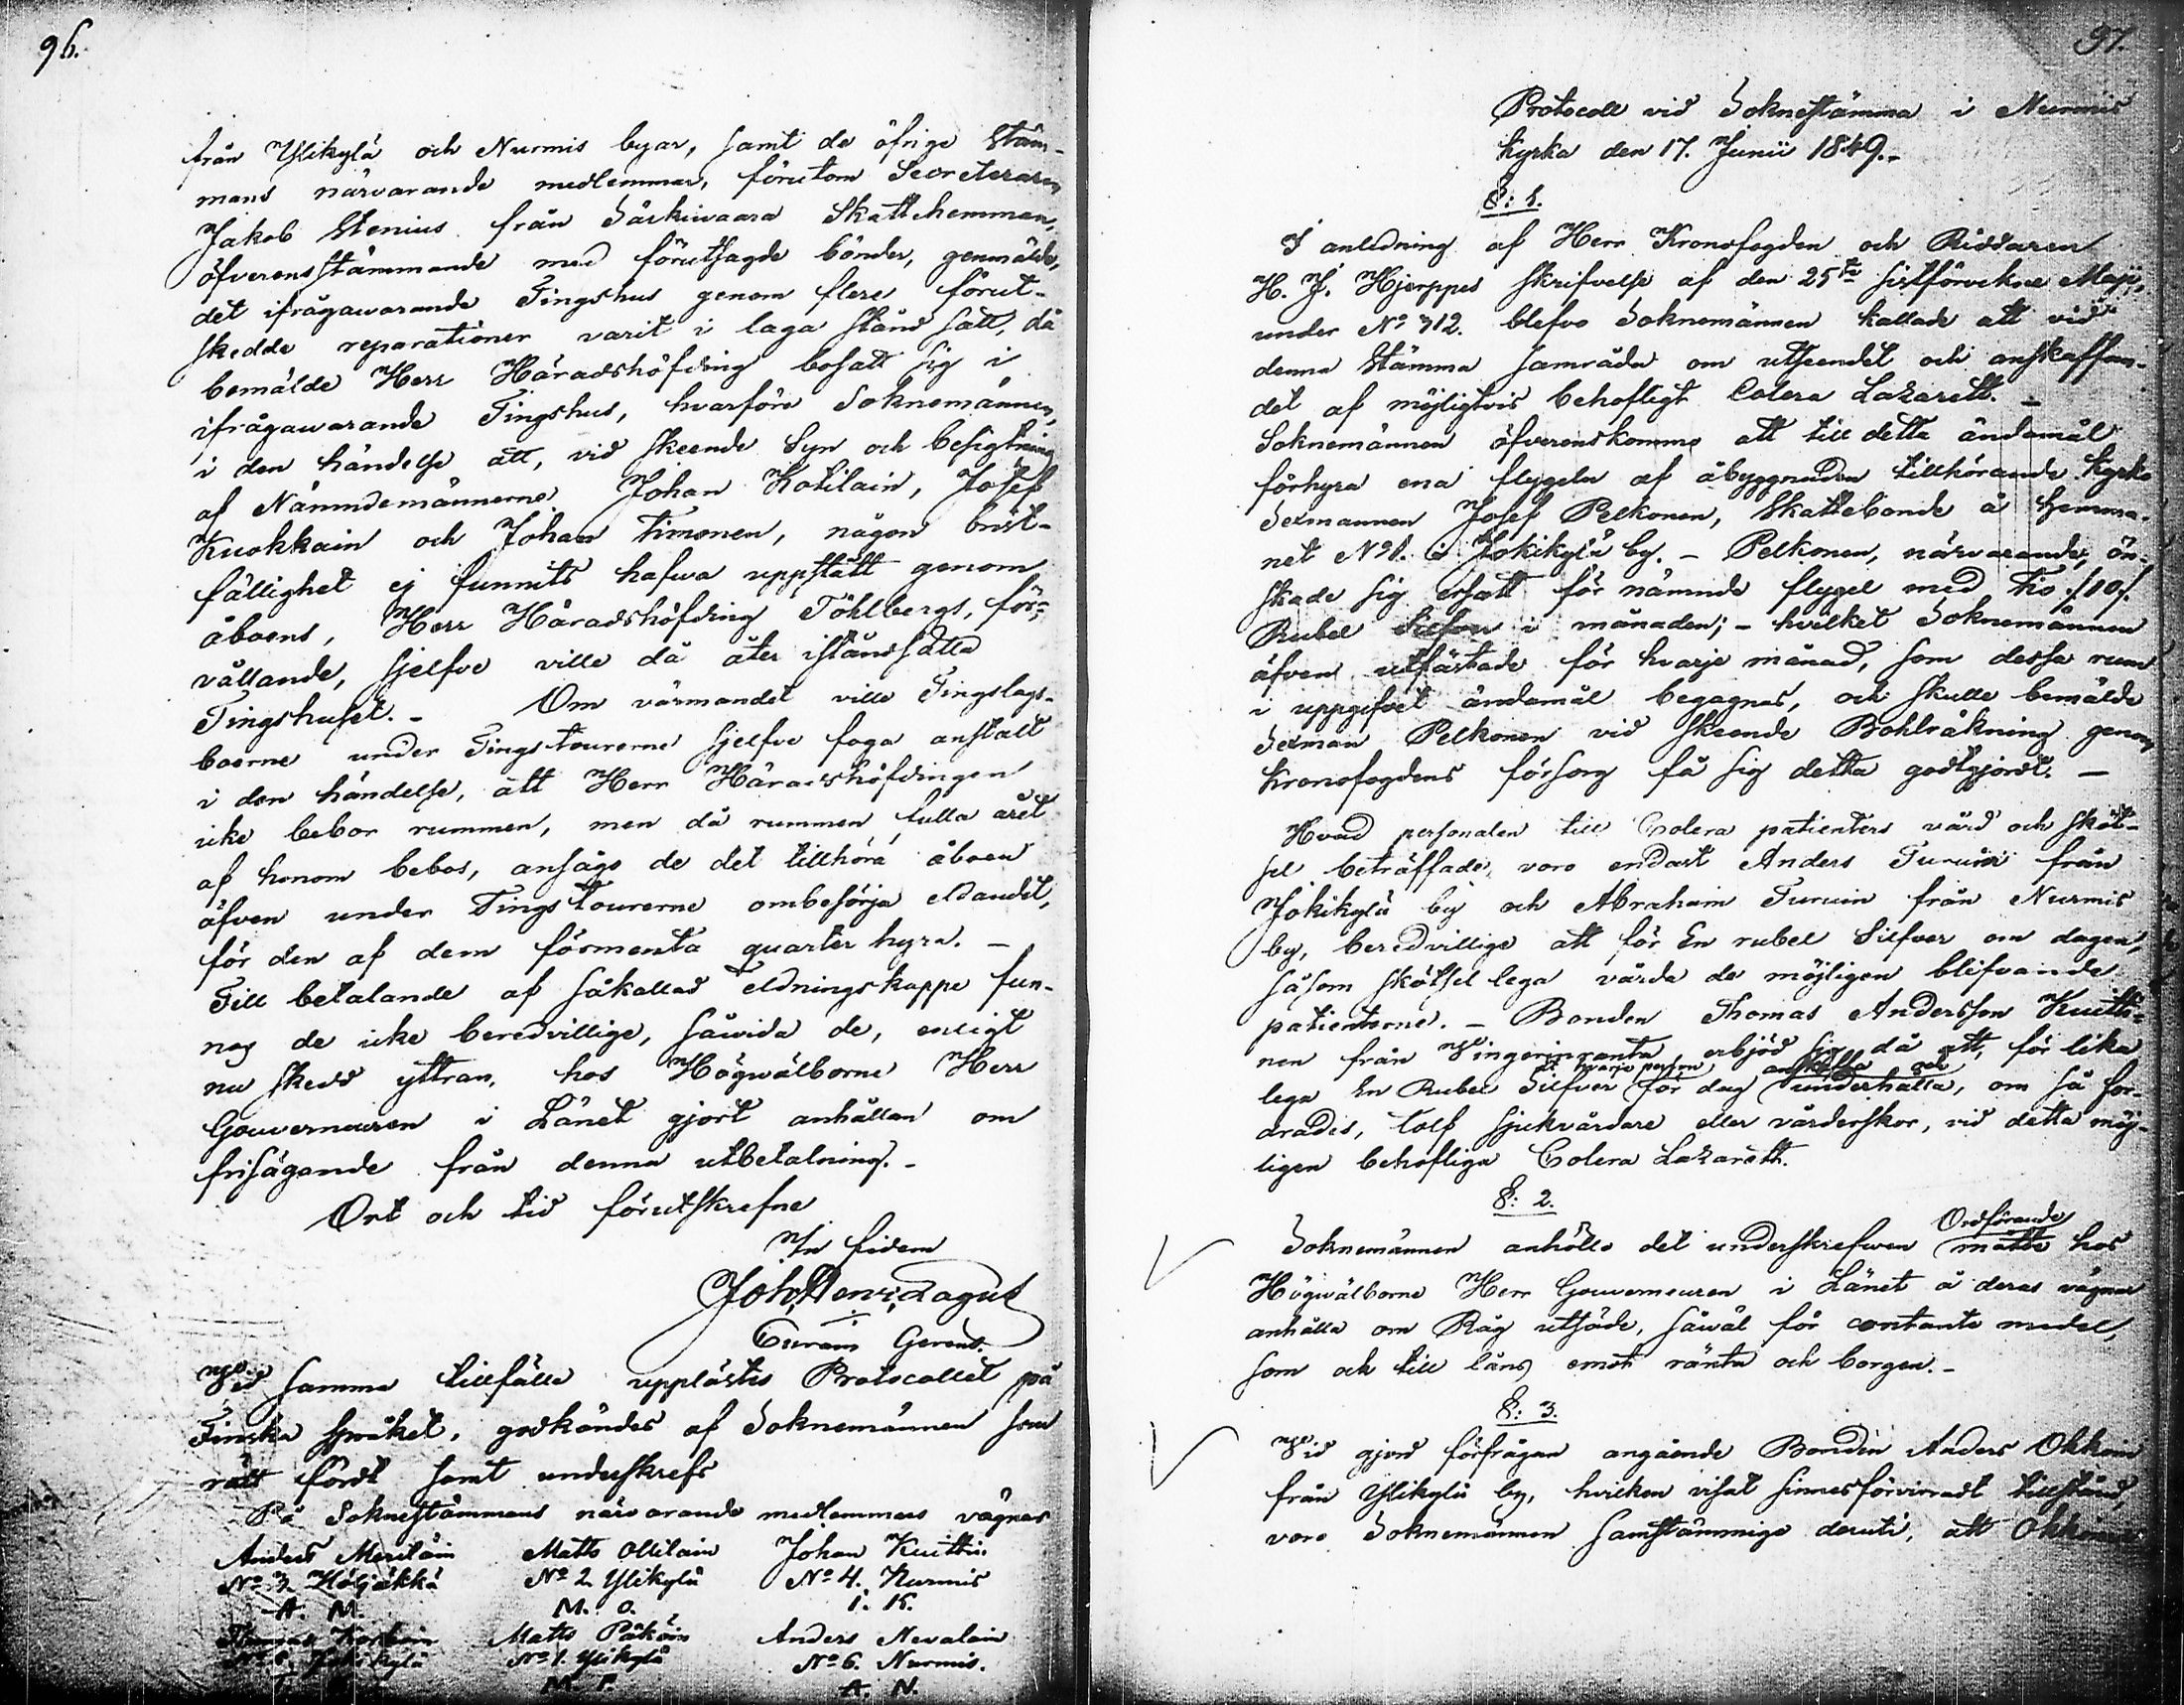 96.
från Ylikylä och Nurmis byar, samt de öfrige Stäm-
mans närvarande medlemmar, förutom Secreteraren
Jakob Stenius från Särkivaara Skattehemman,
öfverensstämmande med förutsagde bönder, genmälde,
det ifrågawarande Tingshus genom flere förut-
skedde reparationer varit i laga stånd satt, då
bemälde Herr Häradshöfding bosatt sig i
ifrågawarande Tingshus, hvarföre Soknemännen,
i den händelse att, vid skeende Syn och besigtning
af Nämndemännerne Johan Kotilain, Josef
Kuokkain och Johan Timonen, någon brist-
fällighet ej funnits hafwa uppstått genom
åboens, Herr Häradshöfding Töhlbergs, för-
vållande, sjelfve ville då åter iståndsätta
Tingshuset. - Om värmandet ville Tingslags-
boerne under Tingstourerne sjelfve foga anstalt
i den händelse, att Herr Häradshöfdingen
icke bebor rummen, men då rummen fulla året
af honom bebos, ansågo de det tillhöra åboen
äfven under Tings tourerne ombesörja eldandet,
för den af dem förmenta quarter hyra. -
Till betalande af såkallad eldningskappe fun-
nos de icke beredvillige, såwida de, enligt
nu skedd yttran, hos Högwälborne Herr
Gouverneuren i Länet gjort anhållan om
frisägande från denna utbetalning. -
Ort och tid förutskrefne
In fidem
Joh, Henr, Lagus
Curam Gerens.
Vid samma tillfälle upplästes Protocollet på
Finska språket, godkändes af Soknemännen som
rätt fördt samt underskrefs
På Soknestämmans närvarande medlemmars vägnar
Anders Meriläin Matts Ollilain Johan Kuittin.
No 3. Höljäkkä No 2 Ylikylä No 4. Nurmis
A. M. M. O. I. K.
Matts Päköin Anders Nevalain
Jokikylä No 1. Ylikylä No 6. Nurmis.
M. P. A. N.
97.
Protocoll vid Soknestämma i Nurmis
kyrka den 17. Junii 1849.-
§: 1.
I anledning af Herr Kronofogden och Riddaren
H. J. Hjerppes skrifvelse af den 25te sistförvekne Maji,
under No 312. blefvo Soknemännen kallade att vid
denna Stämma samråda om utseendet och anskaffan-
det af möjligtvis behofligt Colera Lazarett. -
Soknemännen öfverenskommo att till detta ändamål
förhyra ena flygeln af åbyggnaden tillhörande kyrko
Sexmannen Josef Pelkonen, Skattebonde å hemma-
net No 1. i Jokikylä by. - Pelkonen, närvarande, ön-
skade sig ersatt för nämnde flygel med tio /10/.
Rubel Silfver i månaden; - hvilket Soknemännen
äfven utfästade för hvarje månad, som dessa rum
i uppgifvet ändamål begagnas, och skulle bemälde
Sexman Pelkonen vid skeende Bohlräkning genom
Kronofogdens försorg få sig detta godtgjordt. -
Hvad personalen till Colera patienters vård och sköt-
sel beträffade, voro endast Anders Turuin från
Jokikylä by och Abraham Turuin från Nurmis
by, beredvillige att för En rubel Silfver om dagen,
såsom skötsel lega vårda de möjligen blifvande
patienterne. - Bonden Thomas Andersson Kuitti-
nen från Vingerinranta erbjöd sig då att, för lika
åt hvarje person, anskaffa och
lega En Rubel Silfver för dag underhålla, om så for-
drades, tolf sjukvårdare eller vårderskor, vid detta möj-
ligen behofliga Colera Lazarett.
§: 2.
Ordförande
Soknemännen anhöllo det underskrefwen måtte hos
Högwälborne Herr Gouverneuren i Länet å deras vägnar
anhålla om Råg utsäde, såwäl för contante medel,
som ock till låns emot ränta och borgen. -
§: 3.
Vid gjord förfrågan angående Bonden Anders Okkoin
från Ylikylä by, hvilken visat sinnesförvirradt tillstånd,
voro Soknemännen samstämmige deruti, att Okkoinen